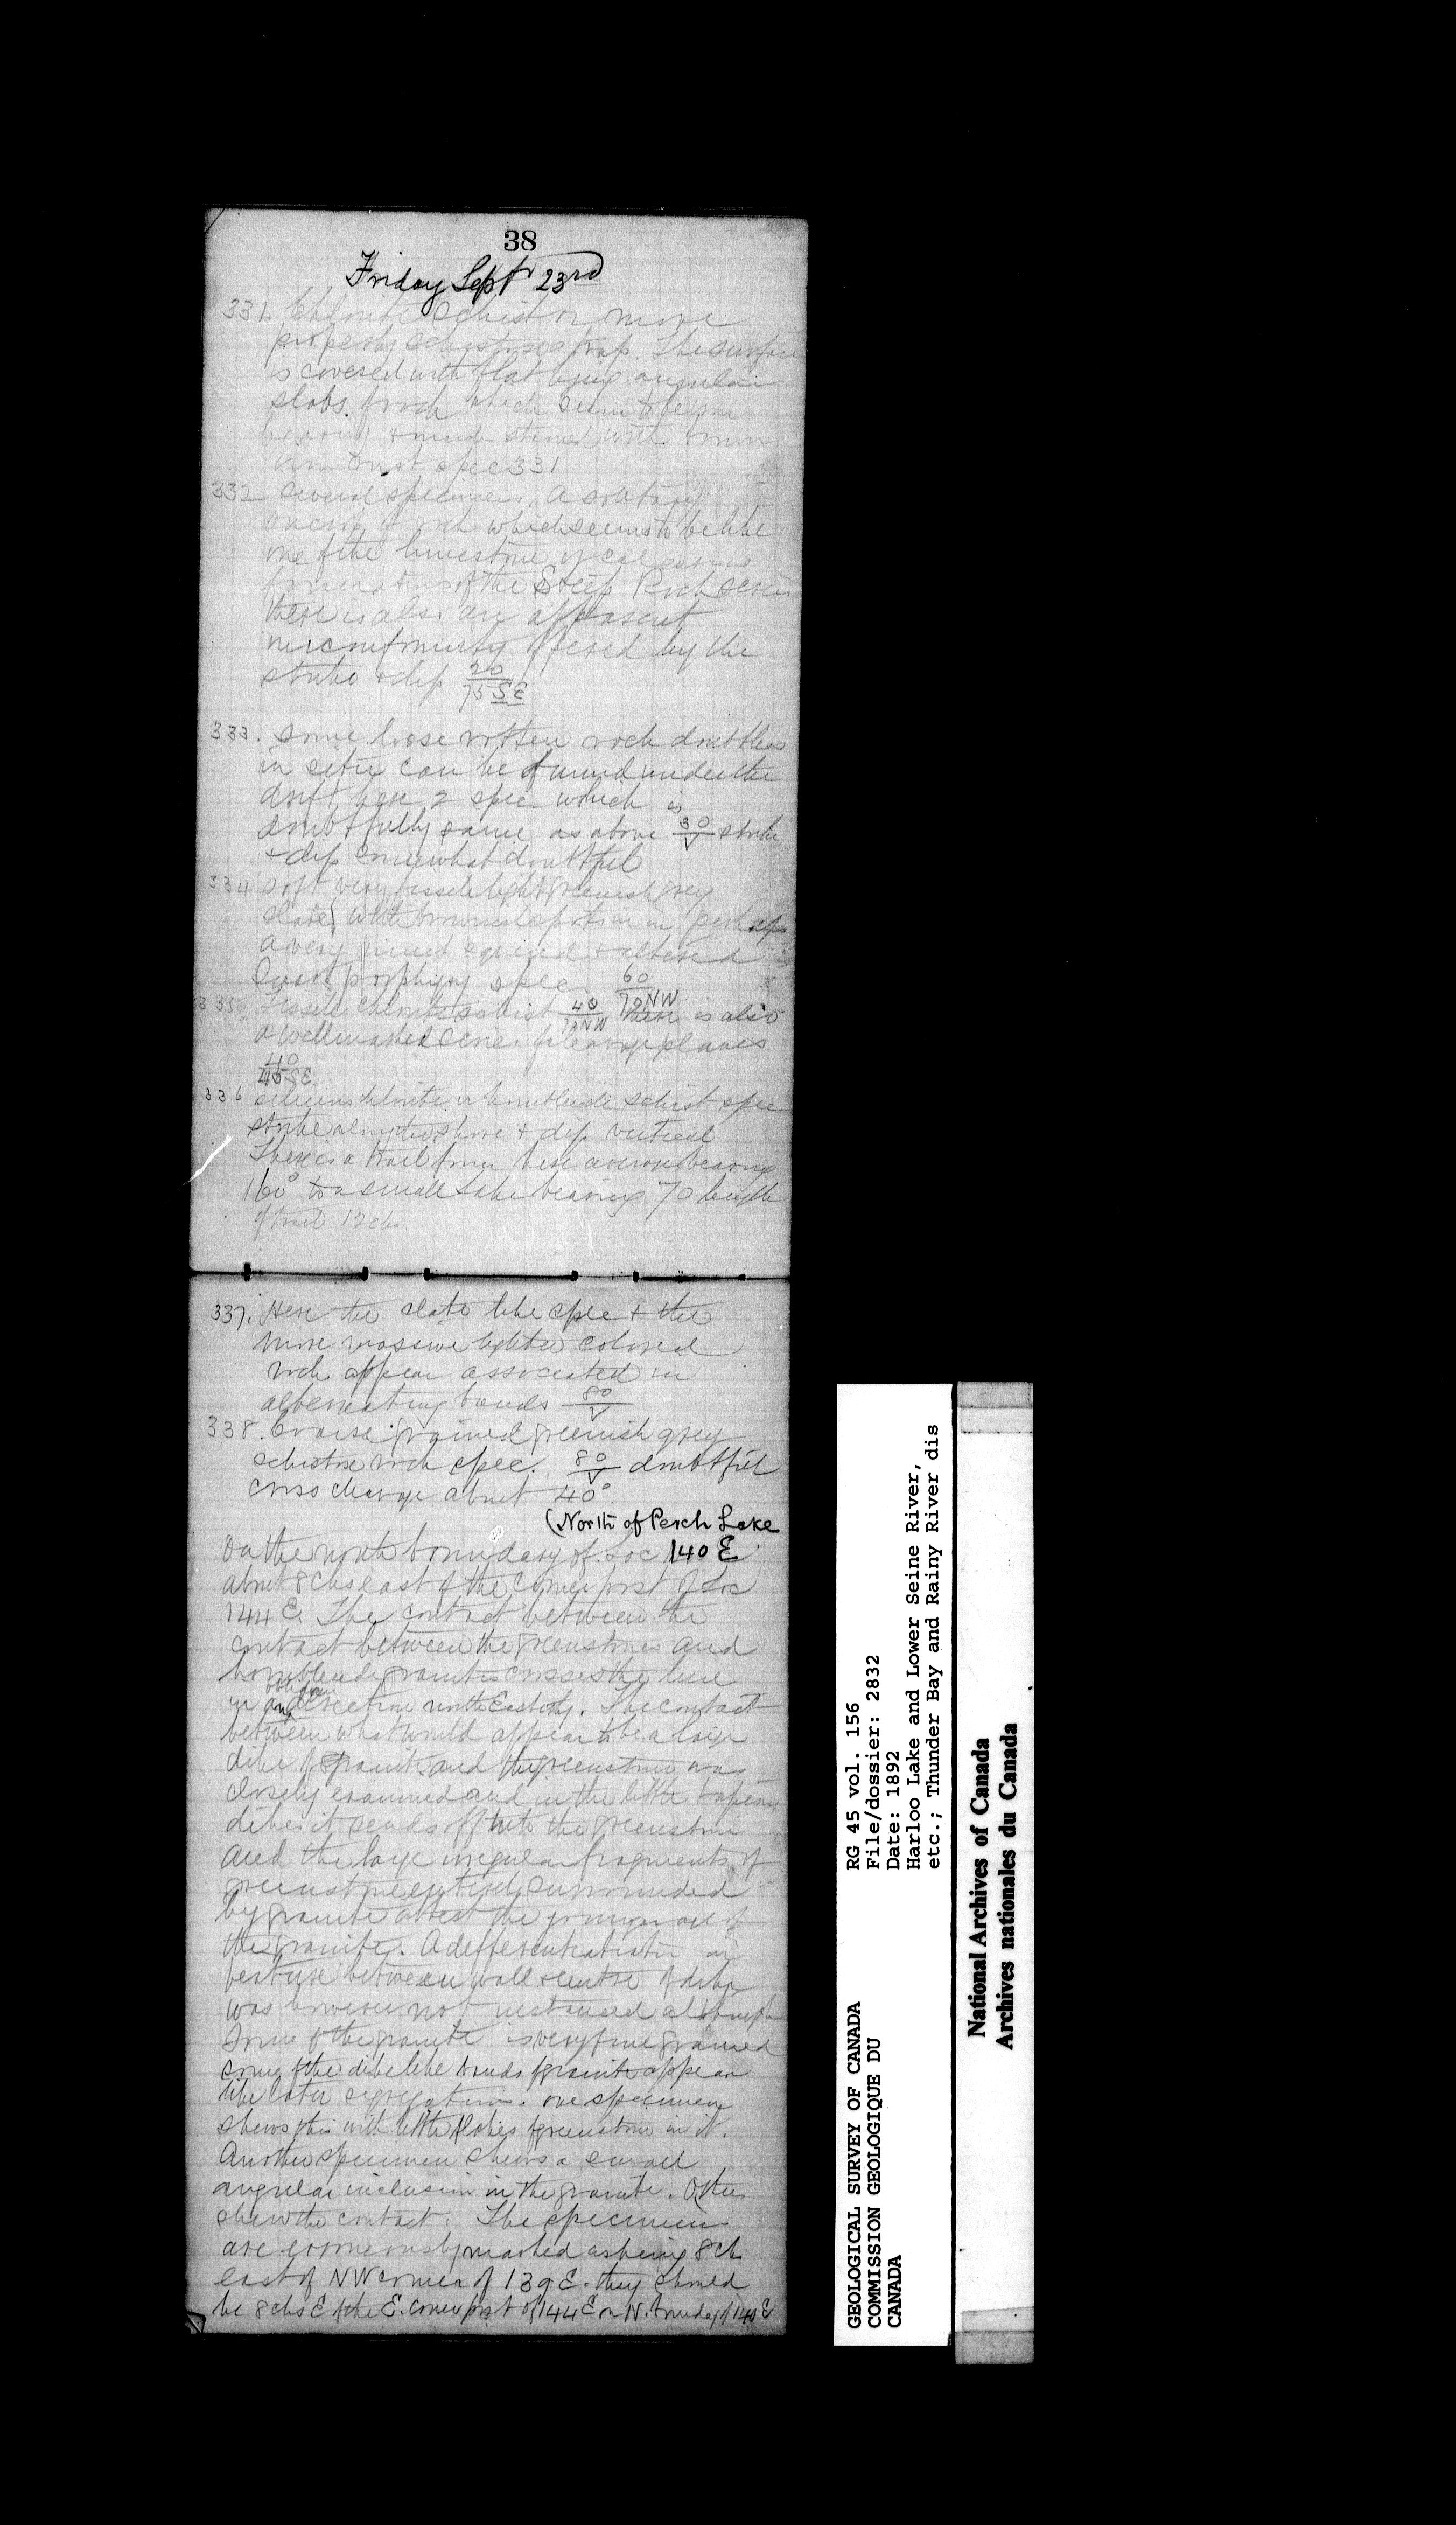 38
Friday Sept 23rd
331. Chlorite schist or more
properly schistose trap. The surface
is covered with flat lying angular
slabs. of rock which seem to be iron
bearing & much stained with brown
iron rust spec 331
332 several specimens. A solitary
of rock which seems to be like
one of the limestone or calcareous
formations of the Steep Rock series
there is also an apparent
unconformity offered by the
strike & dip 20/75 SE
333. some loose rotten rock doubtless
in situ can be found under the
drift here 2 spec. which is
doubtfully same as above 30/V strike
& dip somewhat doubtful
334 soft very fissile light greenish grey
slate with brownish spots in it perhaps
a very much squeezed & altered
quartz porphyry spec. 60/70 NW
335. Fissile chlorite schist 40/70 NW there is also
a well marked series of cleavage planes
40/45 SE
336 siliceous chlorite or hornblende schist spec
strike along the shore & dip vertical
There is a trail from here average bearing
160° to a small lake bearing 70 length
of trail 12 chs.
337. Here the slate like spec & the
more massive lighter colored
rock appear associated in
alternating bands 80/V
338. Coarse grained greenish grey
schistose rock spec. 80/V doubtful
cross cleavage about 40°
(North of Perch Lake
On the north boundary of Loc 140 E
about 8 chs east of the corner post of Loc
144 E. The contact between the
contact between the greenstones and
hornblende granites crosses the line
in an direction north Easterly. The contact
between what would appear to be a large
dike of granite and the greenstone was
closely examined and in the little tapering
dikes it sends off into the greenstone
and the large irregular fragments of
greenstone entirely surrounded
by granite attest the younger age of
the granite. A differentiation in
texture between wall & centre of dike
was however not instanced although
some of the granite is very fine grained
some of the dike like bands of granite appear
like later segregations. one specimen
shows this with little flakes of greenstone in it.
Another specimen shews a small
angular inclusion in the granite. Others
shew the contact. The specimens
are erroneously marked as being 8 ch
east of NW corner of 139 E. they should
be 8 chs E of the E. corner post of 144 E on N. boundary of 140 E
GEOLOGICAL SURVEY OF CANADA
COMMISSION GEOLOGIQUE DU
CANADA
RG 45 vol. 156
File/dossier: 2832
Date: 1892
Harloo Lake and Lower Seine River,
etc.; Thunder Bay and Rainy River dis
National Archives of Canada
Archives nationales du Canada